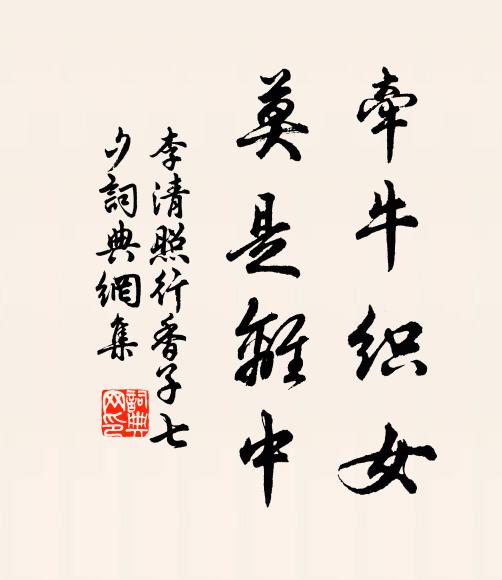 牽牛织女
莫是離中
李清照行香子七
夕詞典網集
詞典
网印